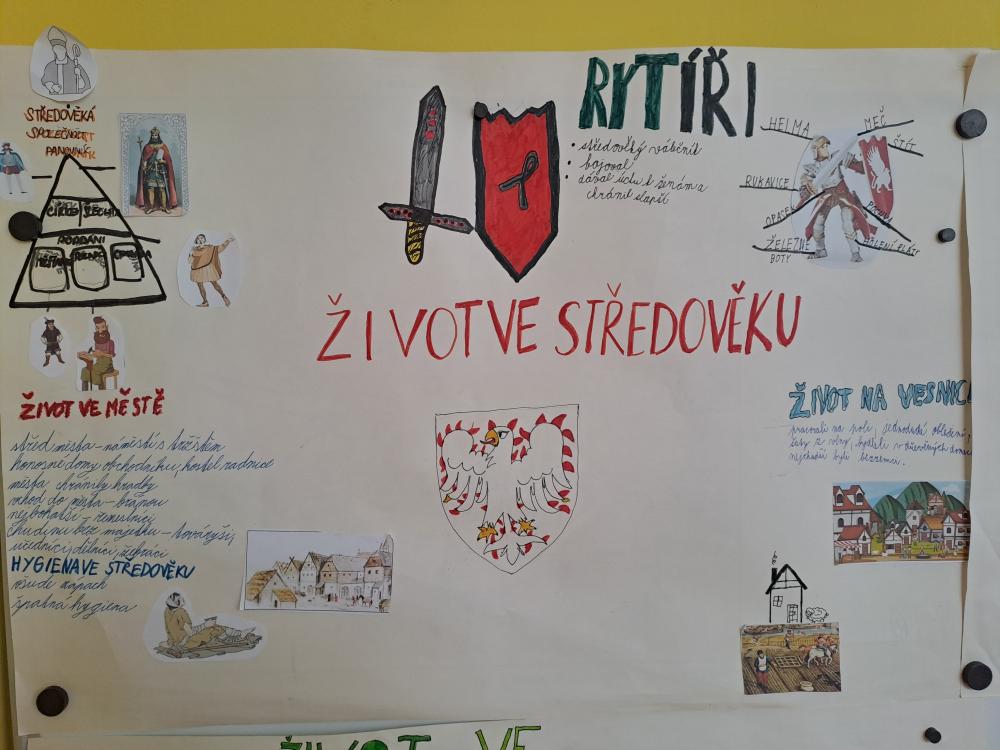 STŘEDOVĚKÁ
SPOLEČNOST
PANOVNÍK
CÍRKEV ŠLECHTA
PODDANÍ
RYTÍŘI
• středověký válečník
• bojoval
• dával úctu k ženám a
chránil slabší
HELMA
MEČ
ŠTÍT
RUKAVICE
OPASEK
POCHVA
ŽELEZNÉ
BOTY
PLÁTY
ŽIVOT VE STŘEDOVĚKU
ŽIVOT VE MĚSTĚ
střed města – náměstí s tržištěm
honosné domy obchodníků, kostel radnice
města chránily hradby
vchod do města – bránou
nejbohatší – řemeslníci
chudinu bez majetku – tovaryši,
učedníci, dělníci, žebráci
HYGIENA VE STŘEDOVĚKU
všude zápach
špatná hygiena
ŽIVOT NA VESNICI
pracovali na poli, jednoduché oblečení,
šaty z vlny, bydleli v dřevěných domech
nejchudší byli bezzemci.
ŽIVOT VE